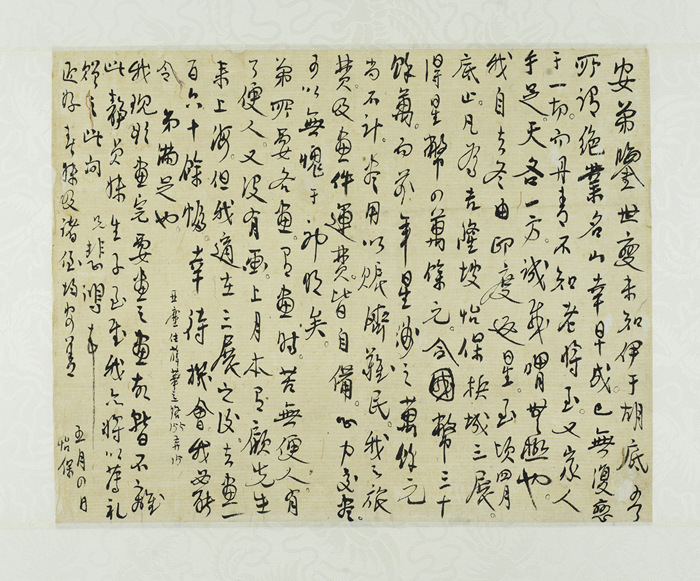 安弟鑒世變未知伊于胡底吾
所謂絕業名山幸早成已無復戀
于一切而丹青不知老將至又家人
手足天各一方誠哉喟無聊也。
我自去冬由印度返星。至頃四月
底止。凡為吉隆坡怡保梹城三展。
得星幣四萬餘元。合國幣三十
餘萬。而前年星洲之萬餘元
尚不計。盡用以賑濟難民。我之旅
費及畫件運費。皆自備。心力交盡。
可以無愧于神明矣。
弟所要各畫。有畫時。苦無便人。有
了便人。又沒有畫。上月本有顧先生
來上海。但我適在三展之後去畫一
百六十餘幅。幸待機會我必能
令弟滿足也。
我現將畫完要畫之畫故暫不離
此靜貞妹生子至慰我亦將以薄禮
贈之此問
近好 妹及諸侄均安善
兄悲鴻
五月四日
怡保